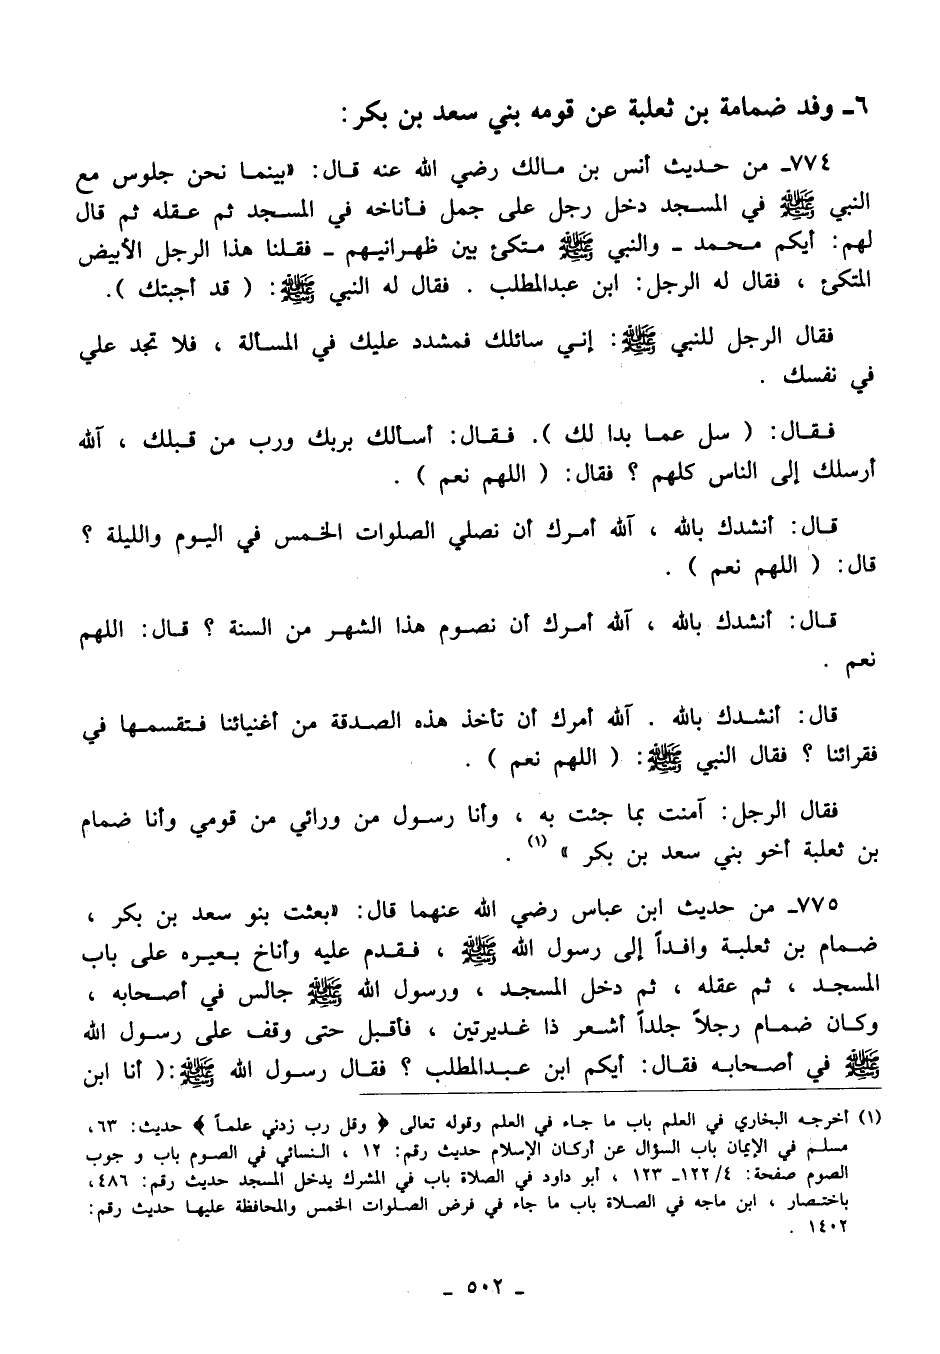 ٦ـ وفد ضمامة بن ثعلبة عن قومه بني سعد بن بكر:
٧٧٤ـ من حديث أنس بن مالك رضي الله عنه قال: «بينما نحن جلوس مع
النبي ﷺ في المسجد دخل رجل على جمل فأناخه في المسجد ثم عقله ثم قال
لهم: أيكم محمد ـ والنبي ﷺ متكئ بين ظهرانيهم ـ فقلنا هذا الرجل الأبيض
المتكئ ، فقال له الرجل: ابن عبدالمطلب . فقال له النبي ﷺ: ( قد أجبتك ).
فقال الرجل للنبي ﷺ: إني سائلك فمشدد عليك في المسألة ، فلا تجد علي
في نفسك .
فقال: ( سل عما بدا لك ). فقال: أسألك بربك ورب من قبلك ، آلله
أرسلك إلى الناس كلهم ؟ فقال: ( اللهم نعم ) .
قال: أنشدك بالله ، آلله أمرك أن نصلي الصلوات الخمس في اليوم والليلة ؟
قال: ( اللهم نعم ) .
قال: أنشدك بالله ، آلله أمرك أن نصوم هذا الشهر من السنة ؟ قال: اللهم
نعم .
قال: أنشدك بالله . آلله أمرك أن تأخذ هذه الصدقة من أغنيائنا فتقسمها في
فقرائنا ؟ فقال النبي ﷺ: ( اللهم نعم ) .
فقال الرجل: آمنت بما جئت به ، وأنا رسول من ورائي من قومي وأنا ضمام
بن ثعلبة أخو بني سعد بن بكر » (١) .
٧٧٥ـ من حديث ابن عباس رضي الله عنهما قال: «بعثت بنو سعد بن بكر ،
ضمام بن ثعلبة وافداً إلى رسول الله ﷺ ، فقدم عليه وأناخ بعيره على باب
المسجد ، ثم عقله ، ثم دخل المسجد ، ورسول الله ﷺ جالس في أصحابه ،
وكان ضمام رجلاً جلداً أشعر ذا غديرتين ، فأقبل حتى وقف على رسول الله
ﷺ في أصحابه فقال: أيكم ابن عبدالمطلب ؟ فقال رسول الله ﷺ:( أنا ابن
(١) أخرجه البخاري في العلم باب ما جاء في العلم وقوله تعالى ﴿ وقل رب زدني علماً ﴾ حديث: ٦٣،
مسلم في الإيمان باب السؤال عن أركان الإسلام حديث رقم: ١٢ ، النسائي في الصوم باب و جوب
الصوم صفحة: ٤/ ١٢٢ـ ١٢٣ ، أبو داود في الصلاة باب في المشرك يدخل المسجد حديث رقم: ٤٨٦،
باختصار ، ابن ماجه في الصلاة باب ما جاء في فرض الصلوات الخمس والمحافظة عليها حديث رقم:
١٤٠٢ .
ـ ٥٠٢ ـ